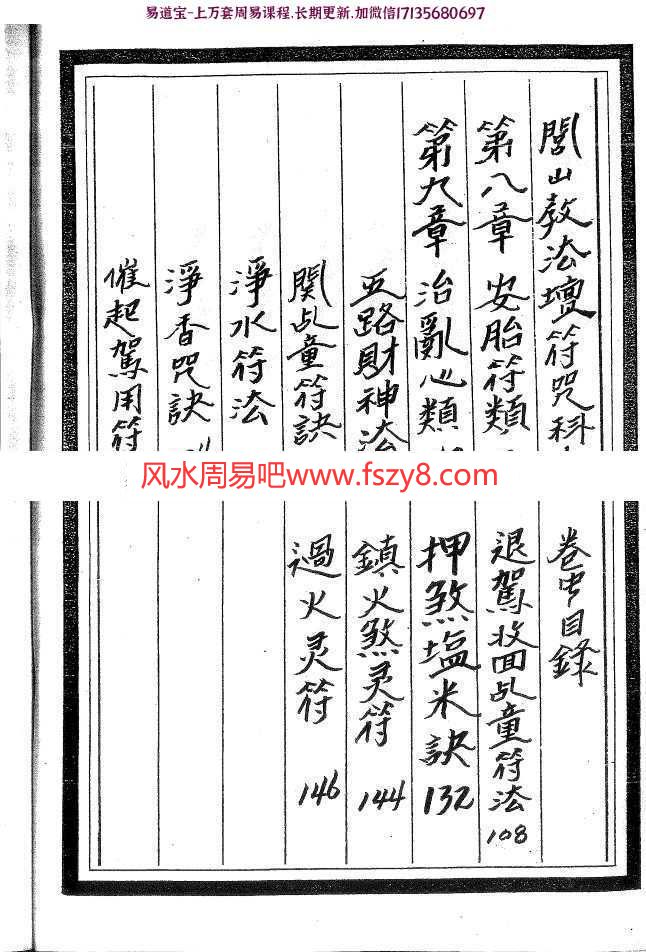 易道宝-上万套周易课程.长期更新.加微信17135680697
閭山教法壇符咒科
第八章 安胎符類
第九章 治亂心類
五路財神法
関乩童符訣
淨水符法
淨香咒訣
催起駕用符
风水周易吧www.fszy8.com
卷中目錄
退駕收回乩童符法 108
押煞塩米訣 132
鎮火煞灵符 144
過火灵符 146